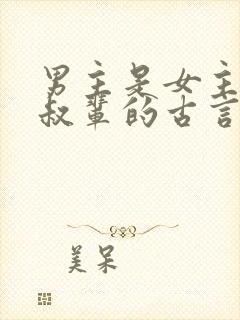 男主是女主
叔辈的古言
美呆